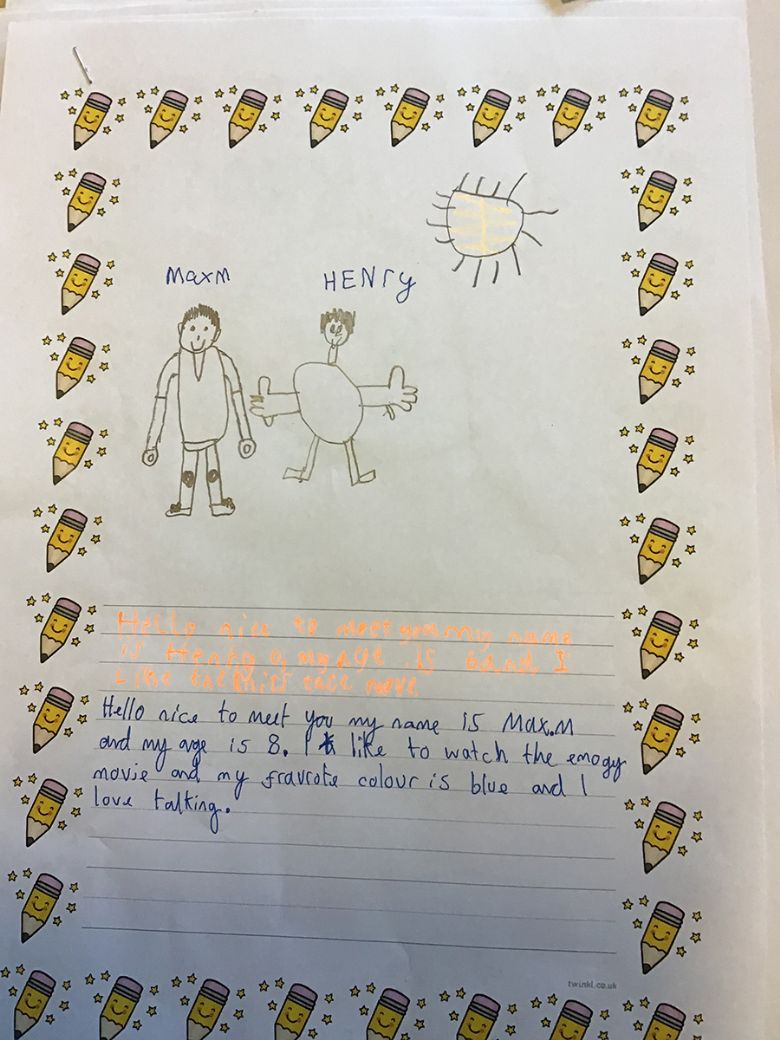 Maxm
HENry
Hello nice to meet you my name
is Henry my age is and I
Like
Hello nice to meet you my name is Max.M
and my age is 8. I like to watch the emogy
movie and my fravrote colour is blue and I
love talking.
twinkl.co.uk